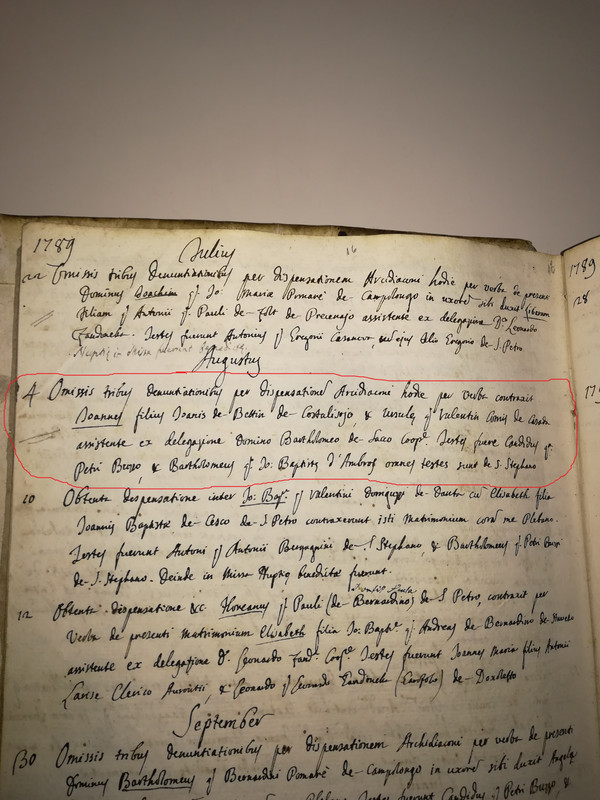 1789
Julius
16
22 Omissis tribus denuntiationibus per dispensationem Arcidiaconi hodie per verba de presenti
Dominus Joachim q. Jo: Maria Pomarè de Campolongo in uxorē sibi duxit
filiam q. Antonii q. Pauli de de Precenajo assistente ex delegazione D. Leonardo
Testes fuerunt Antonius q. Gregorii Casanova, Gregorio de S. Petro
Augustus
4 Omissis tribus denuntiationibus per dispensationē Arcidiaconi hodie per verba contraxit
Joannes filius Joannis de Bettin de Costalisojo & Ursula q. Valentin de
assistente ex delegazione Domino Bartholomeo de Sacco Coop. Testes fuere Candidus q.
Petri Buzzo, & Bartholomeus q. Jo: Baptista d'Ambros omnes testes sunt de S. Stephano
10 Obtenta dispensatione inter Jo: Bap. q. Valentini Doriguzzi de Danta cū Elisabeth filia
Joannis Baptistæ de Cesco de S. Petro contraxerunt isti Matrimonium corā me Plebano.
Testes fuerunt Antoni q. Antonii Bergagnini de S. Stephano, & Bartholomeus q. Petri Buzzi
de S. Stephano. Deinde in Missa Nuptiæ benedictæ fuerunt.
12 Obtenta Dispensatione &c. Floreanus q. Pauli (de Bernardino) de S. Petro, contraxit per
Verba de presenti Matrimonium Elisabeth filia Jo: Bapt. q. Andreas de Bernardino de
assistente ex delegazione D. Leonardo Coop. Testes fuerunt Joannes Maria filius Antonii
Larise Clerico Auronzii, & Leonardo q. de Dosoledo
September
30 Omissis tribus denuntiationibus per dispensationem Archidiaconi per verba de presenti
Dominus Bartholomeus q. Bernardini Pomarè de Campolongo in uxorē sibi duxit Angela
Testes fuerunt Candidus q. Petri Buzzo &
16
1789
28